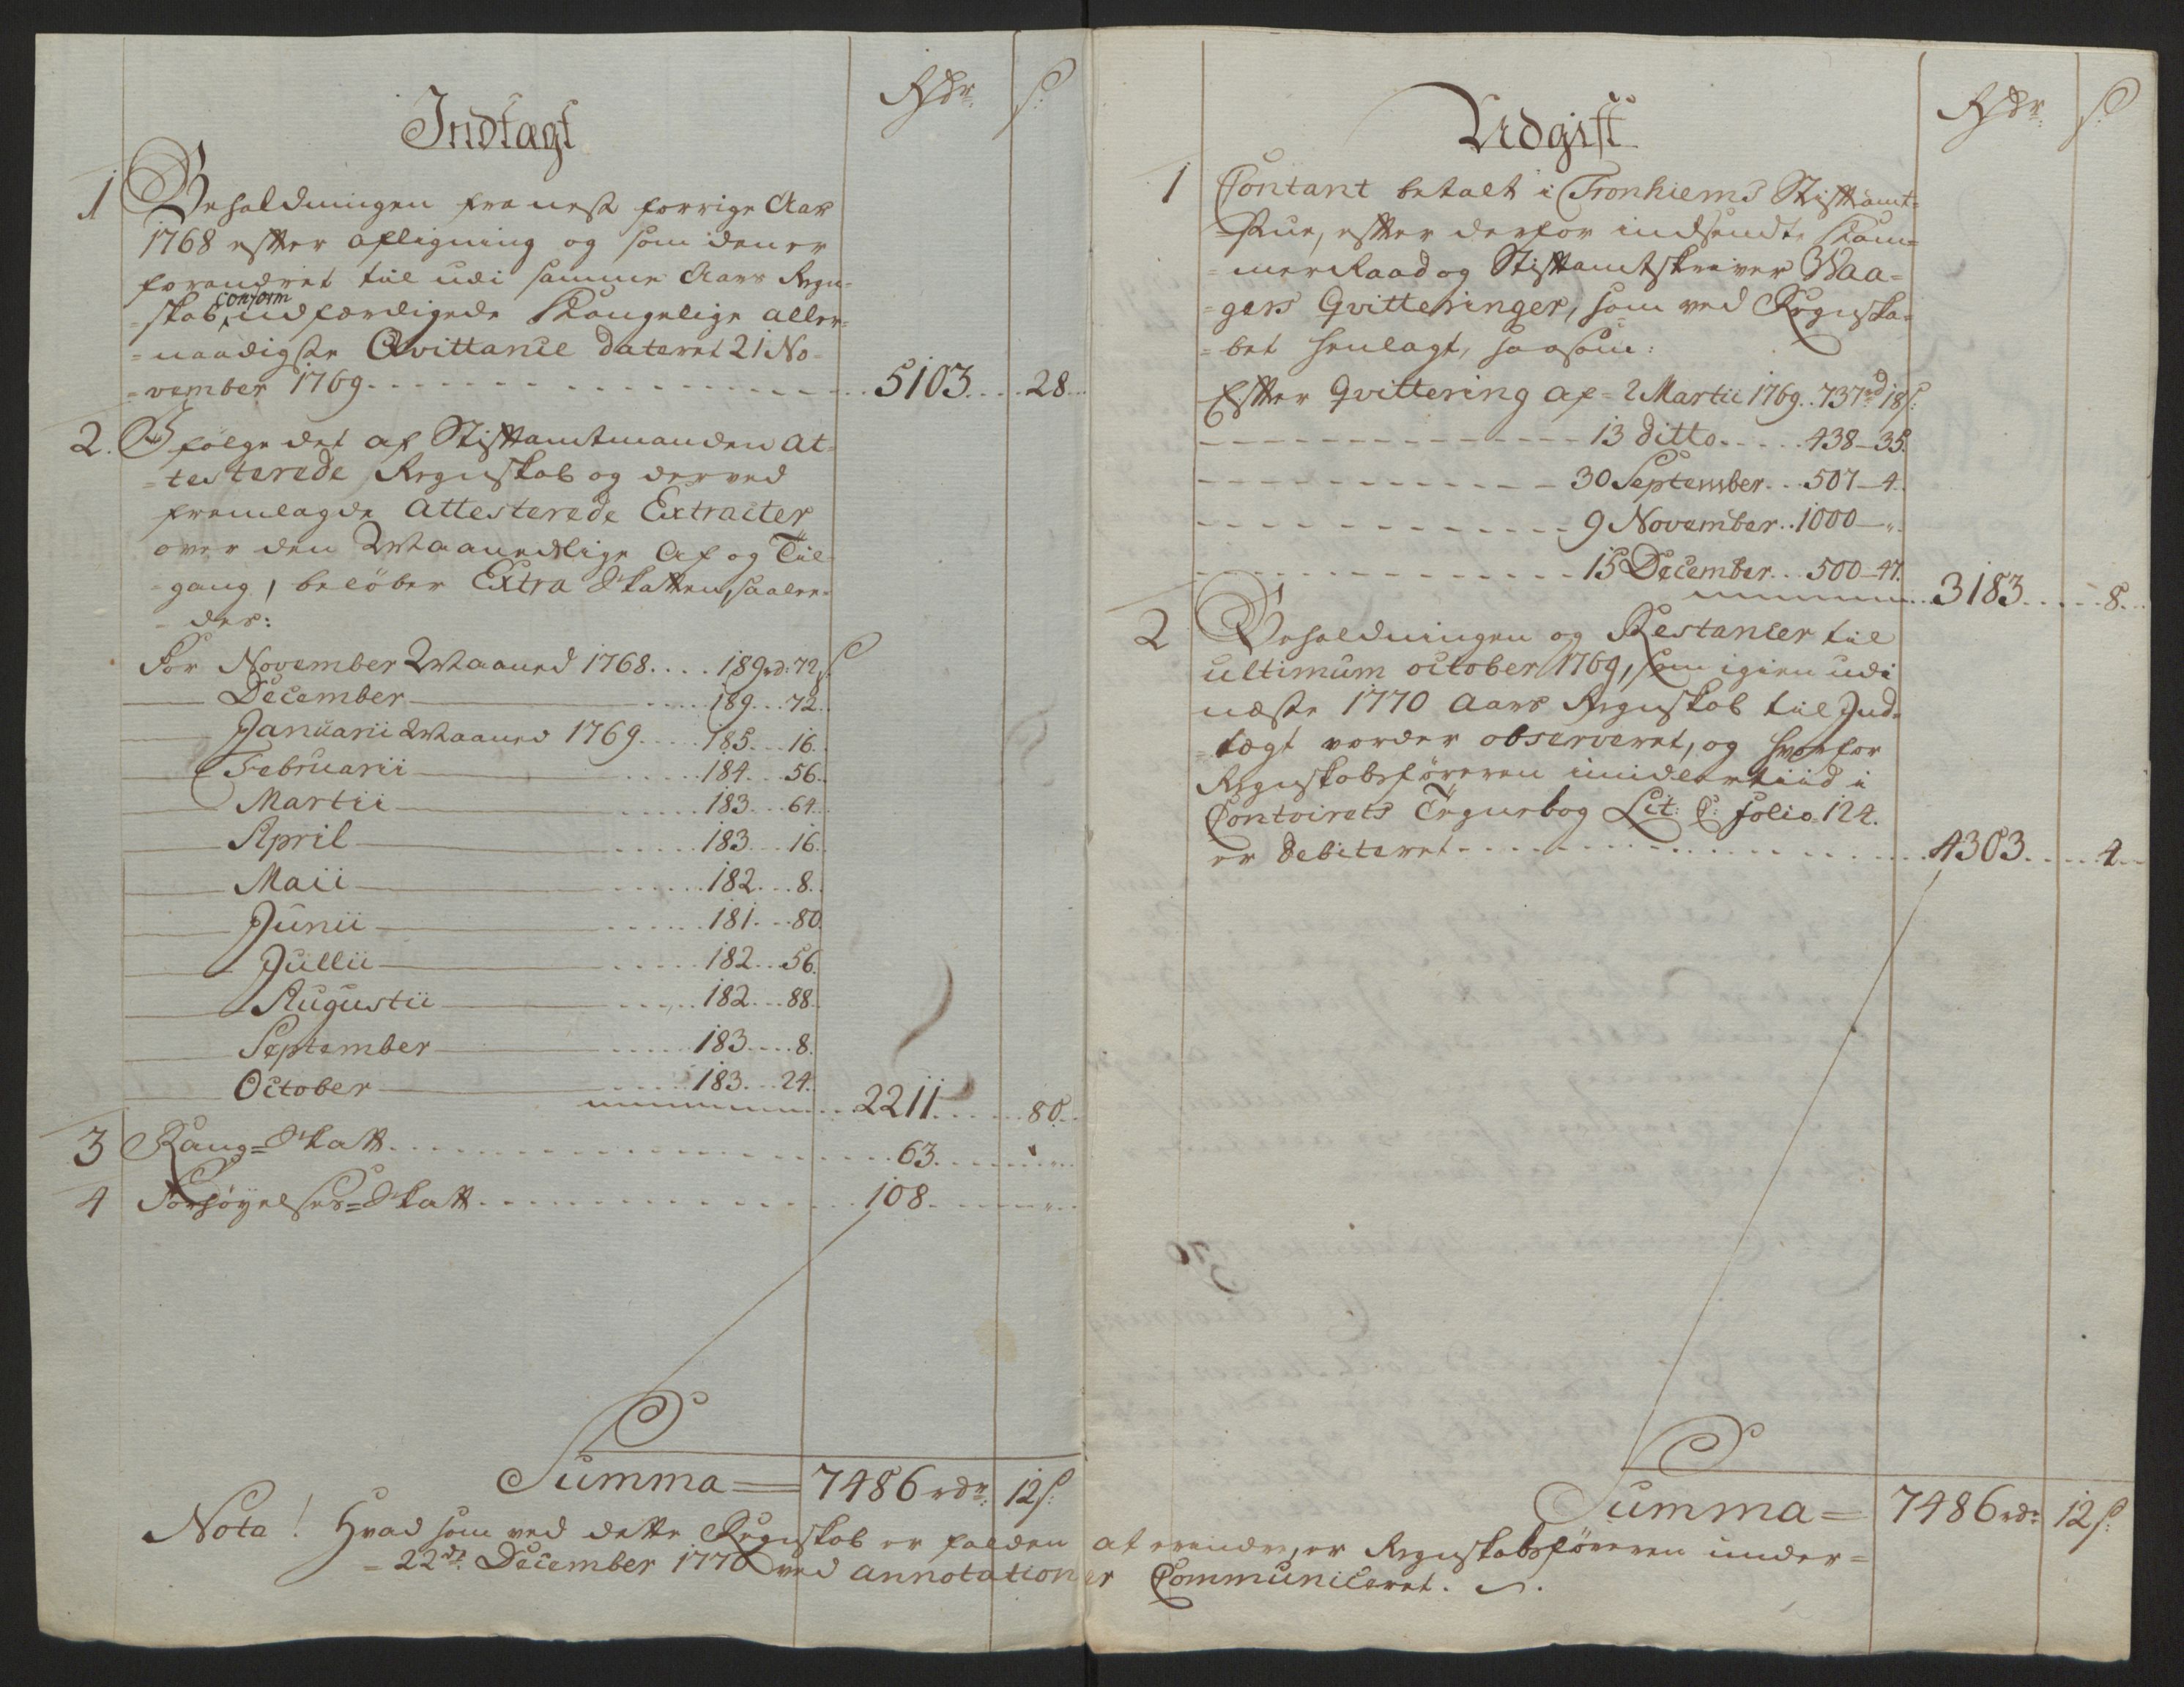 Indtægt
Rdr. s:
1 Beholdningen fra nest forrige Aar
1768 efter afligning og som den er
forandret til udi samme Aars Regn-
=skab, conform udfærdigede Kongelige aller-
=naadigste Qvittance dateret 21 No-
=vember 1769 5103 28
2. I følge det af Stiftamtmanden At-
=testerede Regnskab og derved
fremlagde Attesterede Extracter
over den Maanedlige Af og Til-
gang, beløber Extra Skatten, saale-
des:
For November Maaned 1768 189 rd: 72 s
December 189 72
Januarii Maaned 1769 185 16
Februarii 184 56
Martii 183 64
April 183 16
Maii 182 8
Junii 181 80
Jullii 182 56
Augustii 182 88
September 183 8
October 183 24
2211 80
3 Rang=Skatt 63 "
4 Forhøyelses=Skatt 108 "
Summa = 7486 rdr: 12 s:
Udgift
Rdr. s:
1 Contant betalt i Tronhiems Stiftamt-
=stue, efter derfor indsendte Kam-
=merRaad og Stiftamtskriver Waa-
=gers Qvitteringer, som ved Regnska-
=bet henlagt, saasom:
Efter Qvittering af 2 Martii 1769 737 rd 18 s:
13 ditto 438 - 35
30 September 507 - 4
9 November 1000 - "
15 December 500 - 47
3183 8
2 Beholdningen og Restancer til
ultimum october 1769, som igien udi
næste 1770 Aars Regnskab til Ind-
tægt vorder observeret, og hvorfor
Regnskabsføreren imidlertiid i
Contoirets Tegnebog Lit: C: folio 124.
er debiteret 4303 4
Summa = 7486 rdr 12 s:
Nota! Hvad som ved dette Regnskab er falden at erindre, er Regnskabsføreren under=
=22de December 1770 ved annotationer Communiceret.